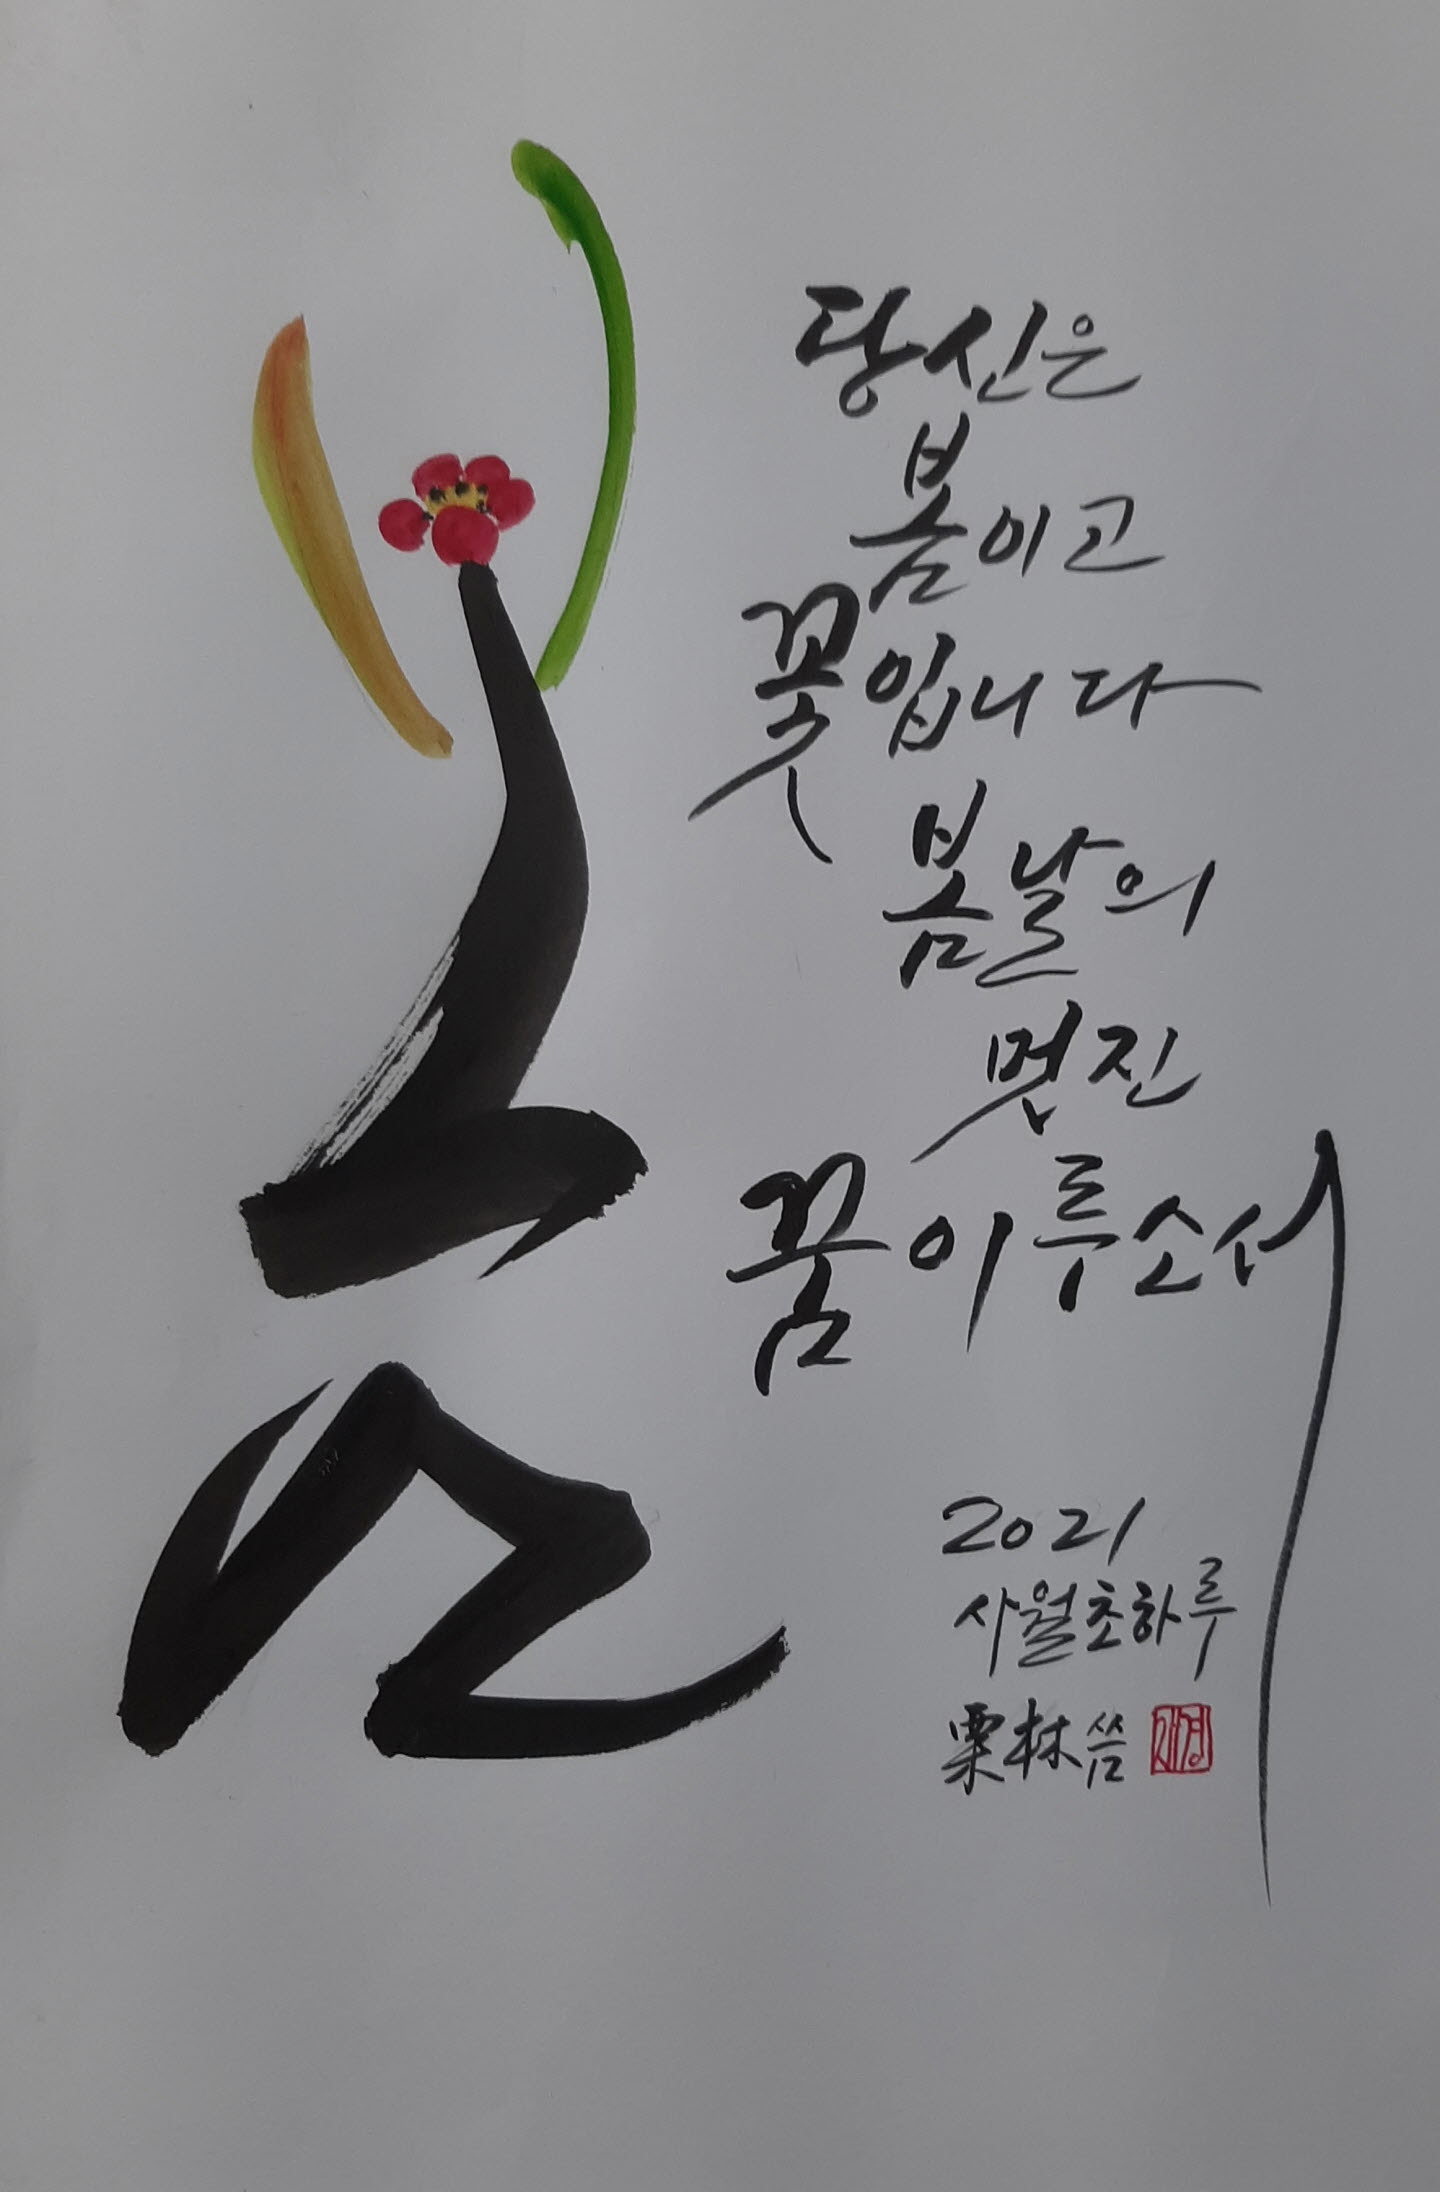 봄
당신은
봄이고
꽃입니다
봄날의
멋진
꿈 이루소서
2021
사월초하루
栗林 씀
재경